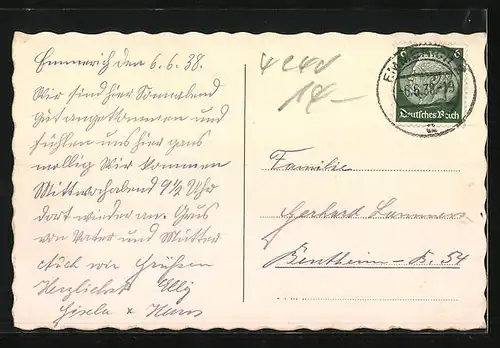 Emmerich den 6.6.38.
Wir sind hier Sonnabend
Gut angekommen und
fühlen uns hier ganz
mollig Wir kommen
Mittwochabend 9½ Uhr
dort wieder an. Grus
von Vater und Mutter
Auch wir Grüßen
Herzlichst Elly
Gisela + Hans
14-
6 6
6.6.38-19
Deutsches Reich
Familie
Gerhard Lammers
Bentheim - B. 54